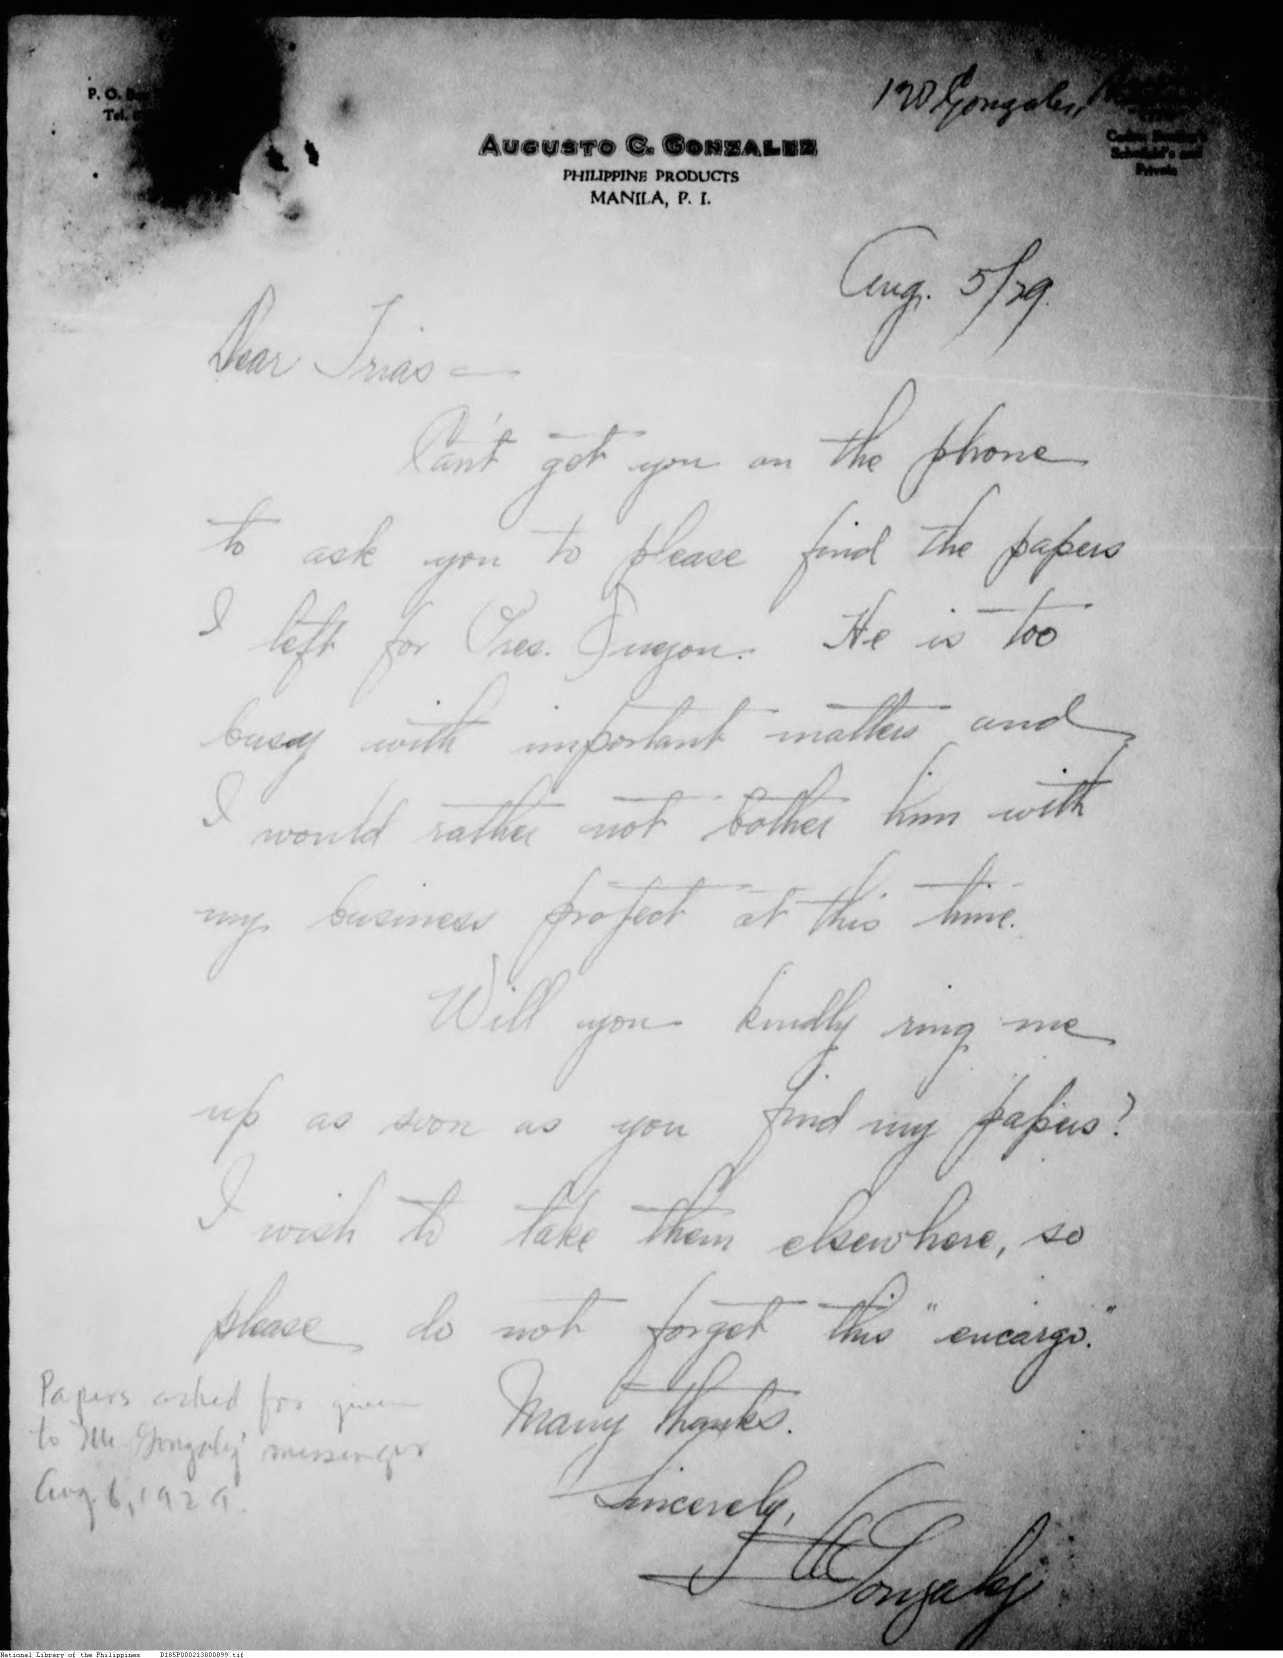 P. O. Box
Tel.
Gonzalez,
AUGUSTO C. GONZALEZ
PHILIPPINE PRODUCTS
MANILA, P. I.
Codes: Bentley's
Schofield's and
Private
Aug. 5/29.
Dear Trias —
Can't get you on the phone
to ask you to please find the papers
I left for Pres. Quezon. He is too
busy with important matters and
I would rather not bother him with
my business project at this time.
Will you kindly ring me
up as soon as you find my papers?
I wish to take them elsewhere, so
please do not forget this "encargo."
Many thanks.
Sincerely,
A C Gonzalez
Papers asked for given
to Mr. Gonzalez' messenger
Aug. 6, 1929.
National Library of the Philippines D185P000213800099.tif